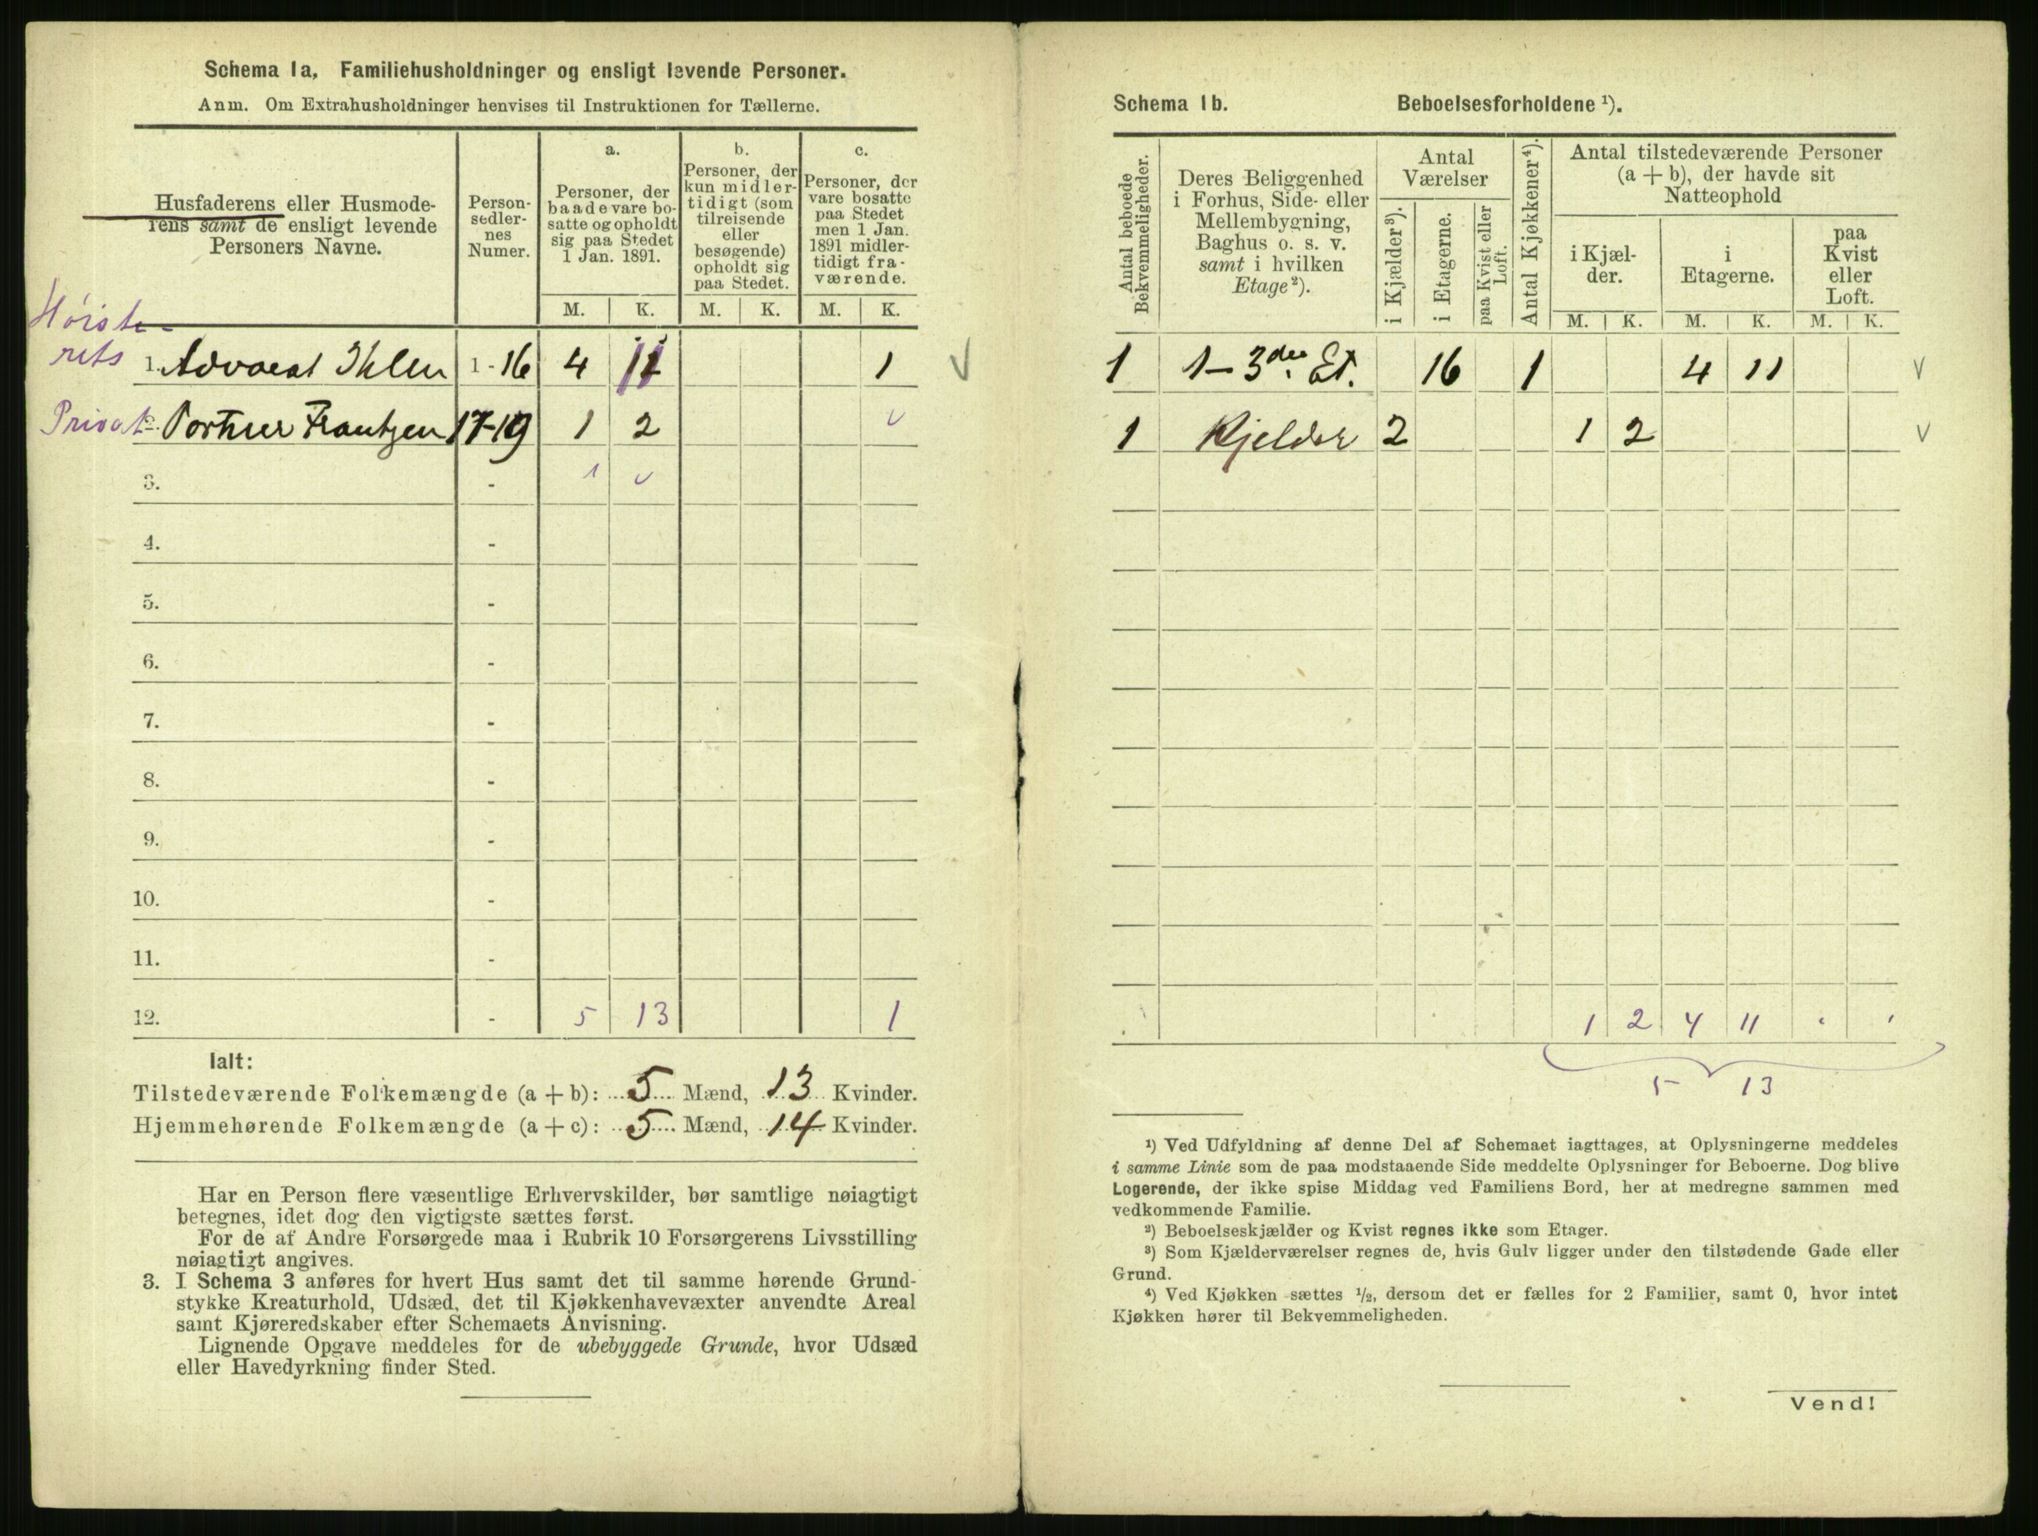 Schema 1a, Familiehusholdninger og ensligt levende Personer.
Anm. Om Extrahusholdninger henvises til Instruktionen for Tællerne.
Husfaderens eller Husmode-
rens samt de ensligt levende
Personers Navne.
Person-
sedler-
nes
Numer.
a.
Personer, der
baade vare bo-
satte og opholdt
sig paa Stedet
1 Jan. 1891.
b.
Personer, der
kun midler-
tidigt (som
tilreisende
eller
besøgende)
opholdt sig
paa Stedet.
c.
Personer, der
vare bosatte
paa Stedet
men 1 Jan.
1891 midler-
tidigt fra-
værende.
M. K. M. K. M. K.
Høiste-
rets 1. Advocat Ihlen 1 - 16 4 11 1 V
Privat 2. Portner Frantzen 17-19 1 2
3. -
4. -
5. -
6. -
7. -
8. -
9. -
10. -
11. -
12. - 5 13 1
Ialt:
Tilstedeværende Folkemængde (a + b): 5 Mænd, 13 Kvinder.
Hjemmehørende Folkemængde (a + c): 5 Mænd, 14 Kvinder.
Har en Person flere væsentlige Erhvervskilder, bør samtlige nøiagtigt
betegnes, idet dog den vigtigste sættes først.
For de af Andre Forsørgede maa i Rubrik 10 Forsørgerens Livsstilling
nøiagtigt angives.
3. I Schema 3 anføres for hvert Hus samt det til samme hørende Grund-
stykke Kreaturhold, Udsæd, det til Kjøkkenhavevæxter anvendte Areal
samt Kjøreredskaber efter Schemaets Anvisning.
Lignende Opgave meddeles for de ubebyggede Grunde, hvor Udsæd
eller Havedyrkning finder Sted.
Schema 1b. Beboelsesforholdene ¹).
Antal beboede
Bekvemmeligheder.
Deres Beliggenhed
i Forhus, Side- eller
Mellembygning,
Baghus o. s. v.
samt i hvilken
Etage ²).
Antal
Værelser
i Kjælder ³).
i Etagerne.
paa Kvist eller
Loft.
Antal Kjøkkener ⁴).
Antal tilstedeværende Personer
(a + b), der havde sit
Natteophold
i Kjæl-
der.
i
Etagerne.
paa
Kvist
eller
Loft.
M. K. M. K. M. K.
1 1-3die Et. 16 1 4 11 V
1 Kjelder 2 1 2 V
1 2 4 11
5 13
¹) Ved Udfyldning af denne Del af Schemaet iagttages, at Oplysningerne meddeles
i samme Linie som de paa modstaaende Side meddelte Oplysninger for Beboerne. Dog blive
Logerende, der ikke spise Middag ved Familiens Bord, her at medregne sammen med
vedkommende Familie.
²) Beboelseskjælder og Kvist regnes ikke som Etager.
³) Som Kjælderværelser regnes de, hvis Gulv ligger under den tilstødende Gade eller
Grund.
⁴) Ved Kjøkken sættes ½, dersom det er fælles for 2 Familier, samt 0, hvor intet
Kjøkken hører til Bekvemmeligheden.
Vend!